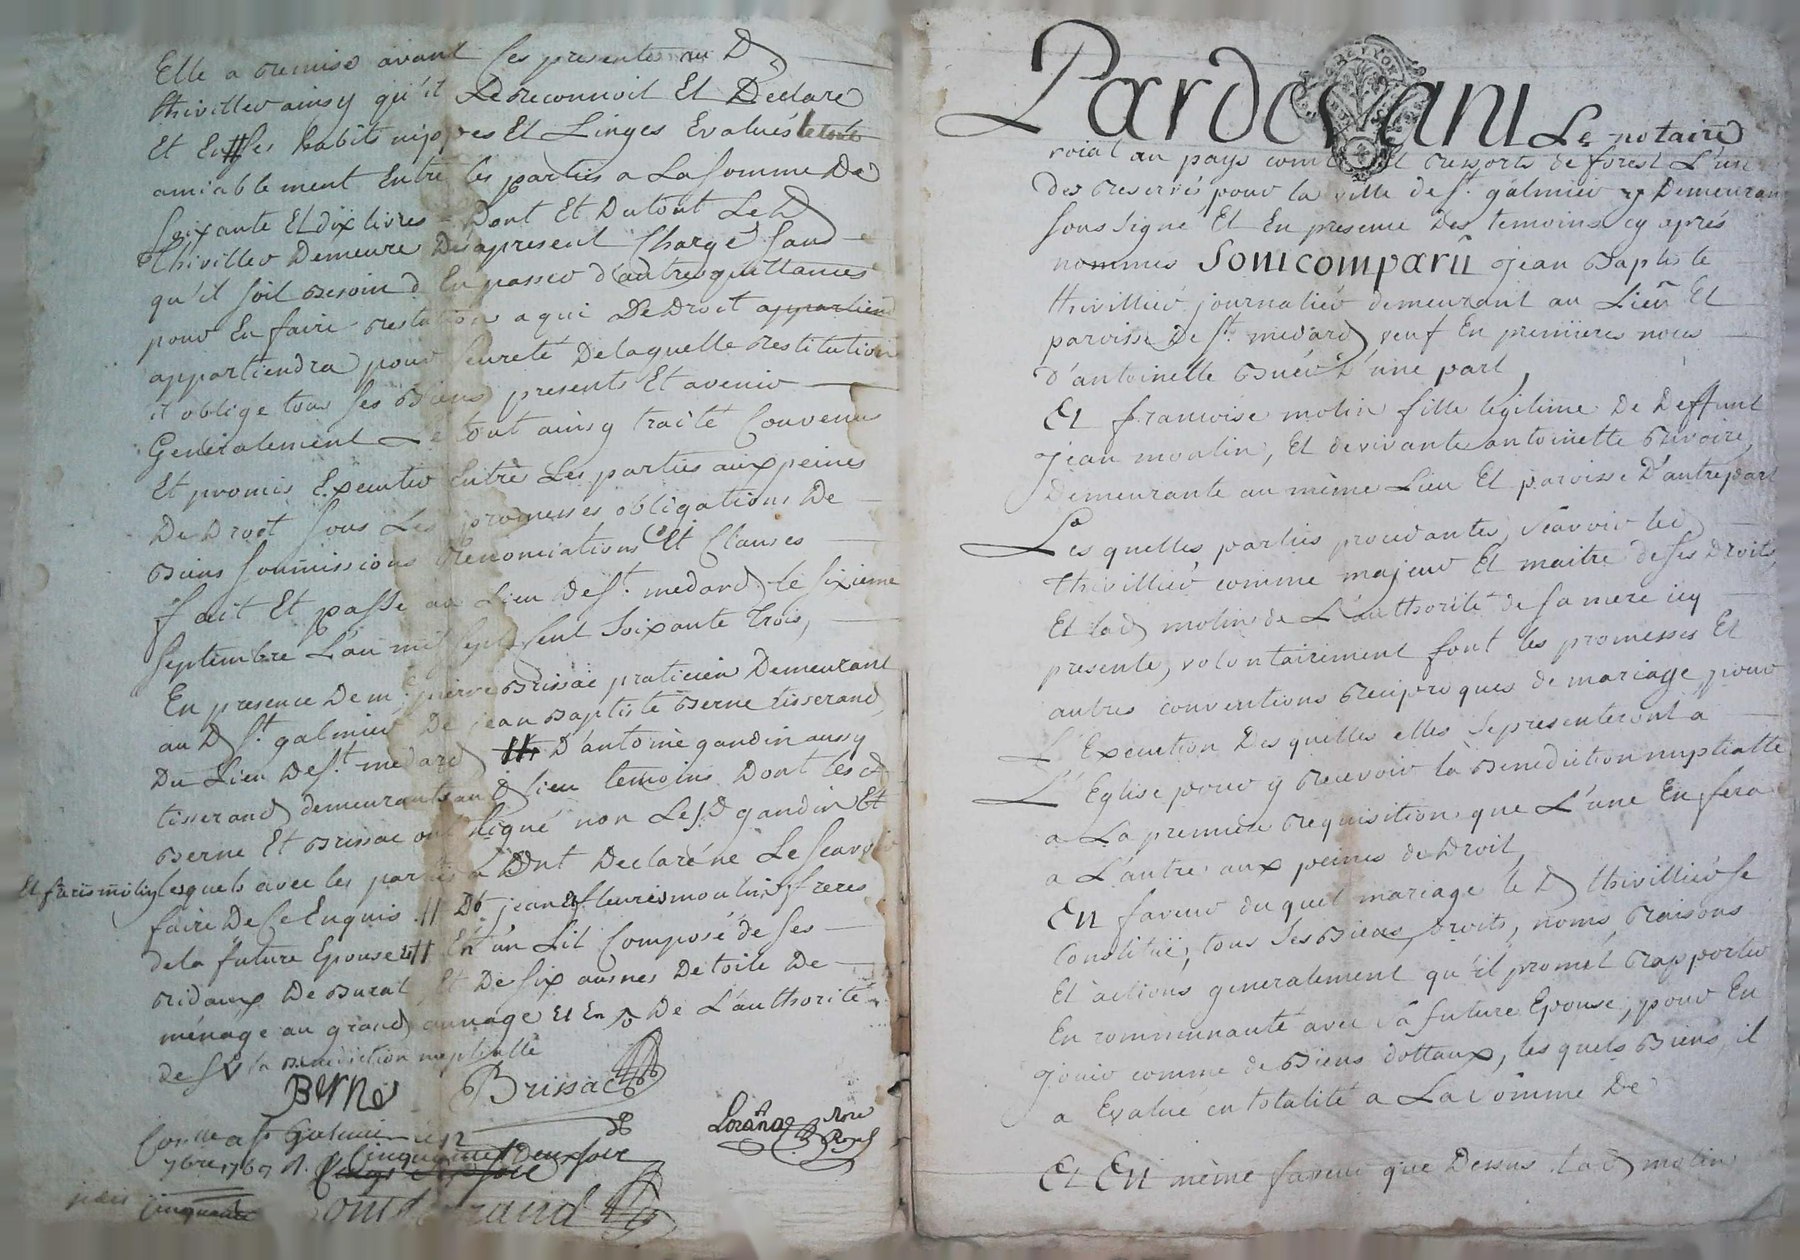 Elle a remise avant ces presentes au D
thivillier ainsy qu'il Le reconnoit Et Declare
Et En ses habits nippes Et Linges Evalués
amiablement Entre les parties a La somme De
soixante Et dix livres Dont Et Dutout Le D
thivillier Demeure Des apresent Chargé Sans
qu'il soit Besoin d'En passer d'autres quittances
pour En faire restitution a qui De Droit appartient
appartiendra pour seureté De laquelle restitution
il oblige tous ses Biens presents Et avenir
Generalement Le tout ainsy traité Convenus
Et promis Executer Entre Les parties aux peines
De Droit sous Les promesses obligations De
Biens soumissions Renonciations Et Clauses
fait Et passé au Lieu De St. medard le sixieme
septembre L'an mil sept Cent soixante Trois,
En presence De me. pierre Brissac praticien Demeurant
au D St. galmier De jean Baptiste Berne tisserand
Du Lieu De St. medard D'antoine gandin aussy
tisserand demeurants au D lieu temoins Dont les d
Berne Et Brissac ont signé non Le s.d gandin Et
lesquels avec les parties ont Declaré ne Le sçavoir
faire De Ce Enquis // De jean Et fleuris moulin freres
de la future Epouse // En un Lit Composé de ses
ridaux De Burat Et De six aunes De toile De
ménage au grand aunage Et En De L'authorité
de la Benediction nuptialle
Berne Brissac
Lorand Nore Royal
Pardevant Le notaire
roial au pays comté Et ressorts de forest L'un
Des reservés pour la ville de St. galmier y Demeurant
sous signé Et En presence Des temoins cy aprés
nommés Sont comparû jean Baptiste
thivillier journalier demeurant au Lieu Et
paroisse De St. medard veuf En premieres noces
D'antoinette Buer D'une part,
Et francoise molin fille legitime De Deffunt
jean moulin, Et de vivante antoinette Rivoire,
Demeurante au même Lieu Et paroisse D'autre part
Les quelles parties procedantes, sçavoir led
thivillier comme majeur Et maitre de ses Droits,
Et lad molin de L'authorité de sa mere icy
presente, volontairement font les promesses Et
autres conventions reciproques de mariage, pour
L'Execution Des quelles elles se presenteront a
L'Eglise pour y recevoir la Benediction nuptialle
a La premiere requisition que L'une En fera
a L'autre aux peines de Droit,
En faveur du quel mariage le D thivillier se
Constitue, tous ses Biens, Droits, noms, raisons
Et actions generalement qu'il promet rapporter
En communauté avec sa future Epouse, pour En
jouir comme de Biens dottaux, les quels Biens, il
a Evalué en totalité a La somme De
Et En même faveur que Dessus lad molin